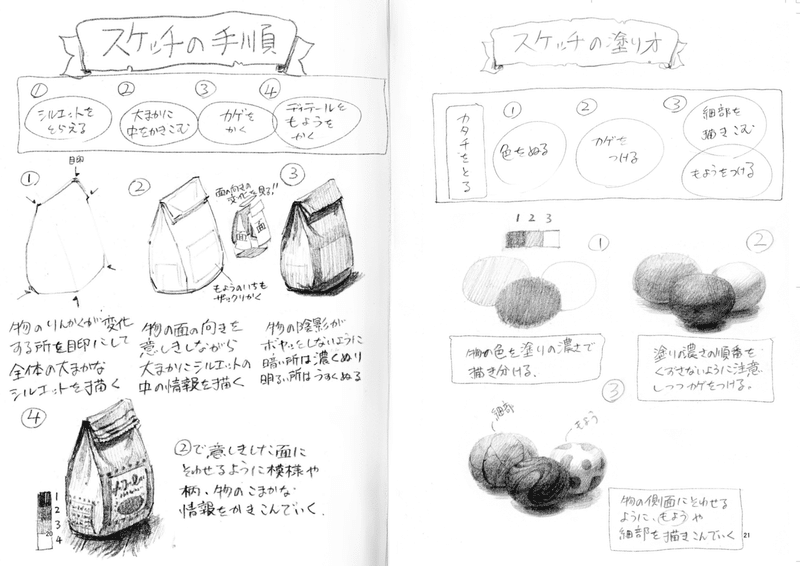 スケッチの手順
①
シルエットを
とらえる
②
大まかに
中をかきこむ
③
カゲを
かく
④
ディテールと
もようを
かく
①
目印
②
面の向きの
変化を見る!!
面
面
もようのいちも
ザックリかく
③
物のりんかくが変化
する所を目印にして
全体の大まかな
シルエットを描く
物の面の向きを
意しきしながら
大まかにシルエットの
中の情報を描く
物の陰影が
ボヤッとしないように
暗い所は濃くぬり
明るい所はうすくぬる
④
1
2
3
4
②で意しきした面に
そわせるように模様や
柄、物のこまかな
情報をかきこんでいく.
20
スケッチの塗り方
カタチをとる
①
色をぬる
②
カゲを
つける
③
細部を
描きこむ
もようをつける
1 2 3
①
物の色を塗りの濃さで
描き分ける.
②
塗りの濃さの順番を
くずさないように注意
しつつカゲをつける。
③
細部
もよう
物の側面にそわせる
ように、もようや
細部を描きこんでいく
21